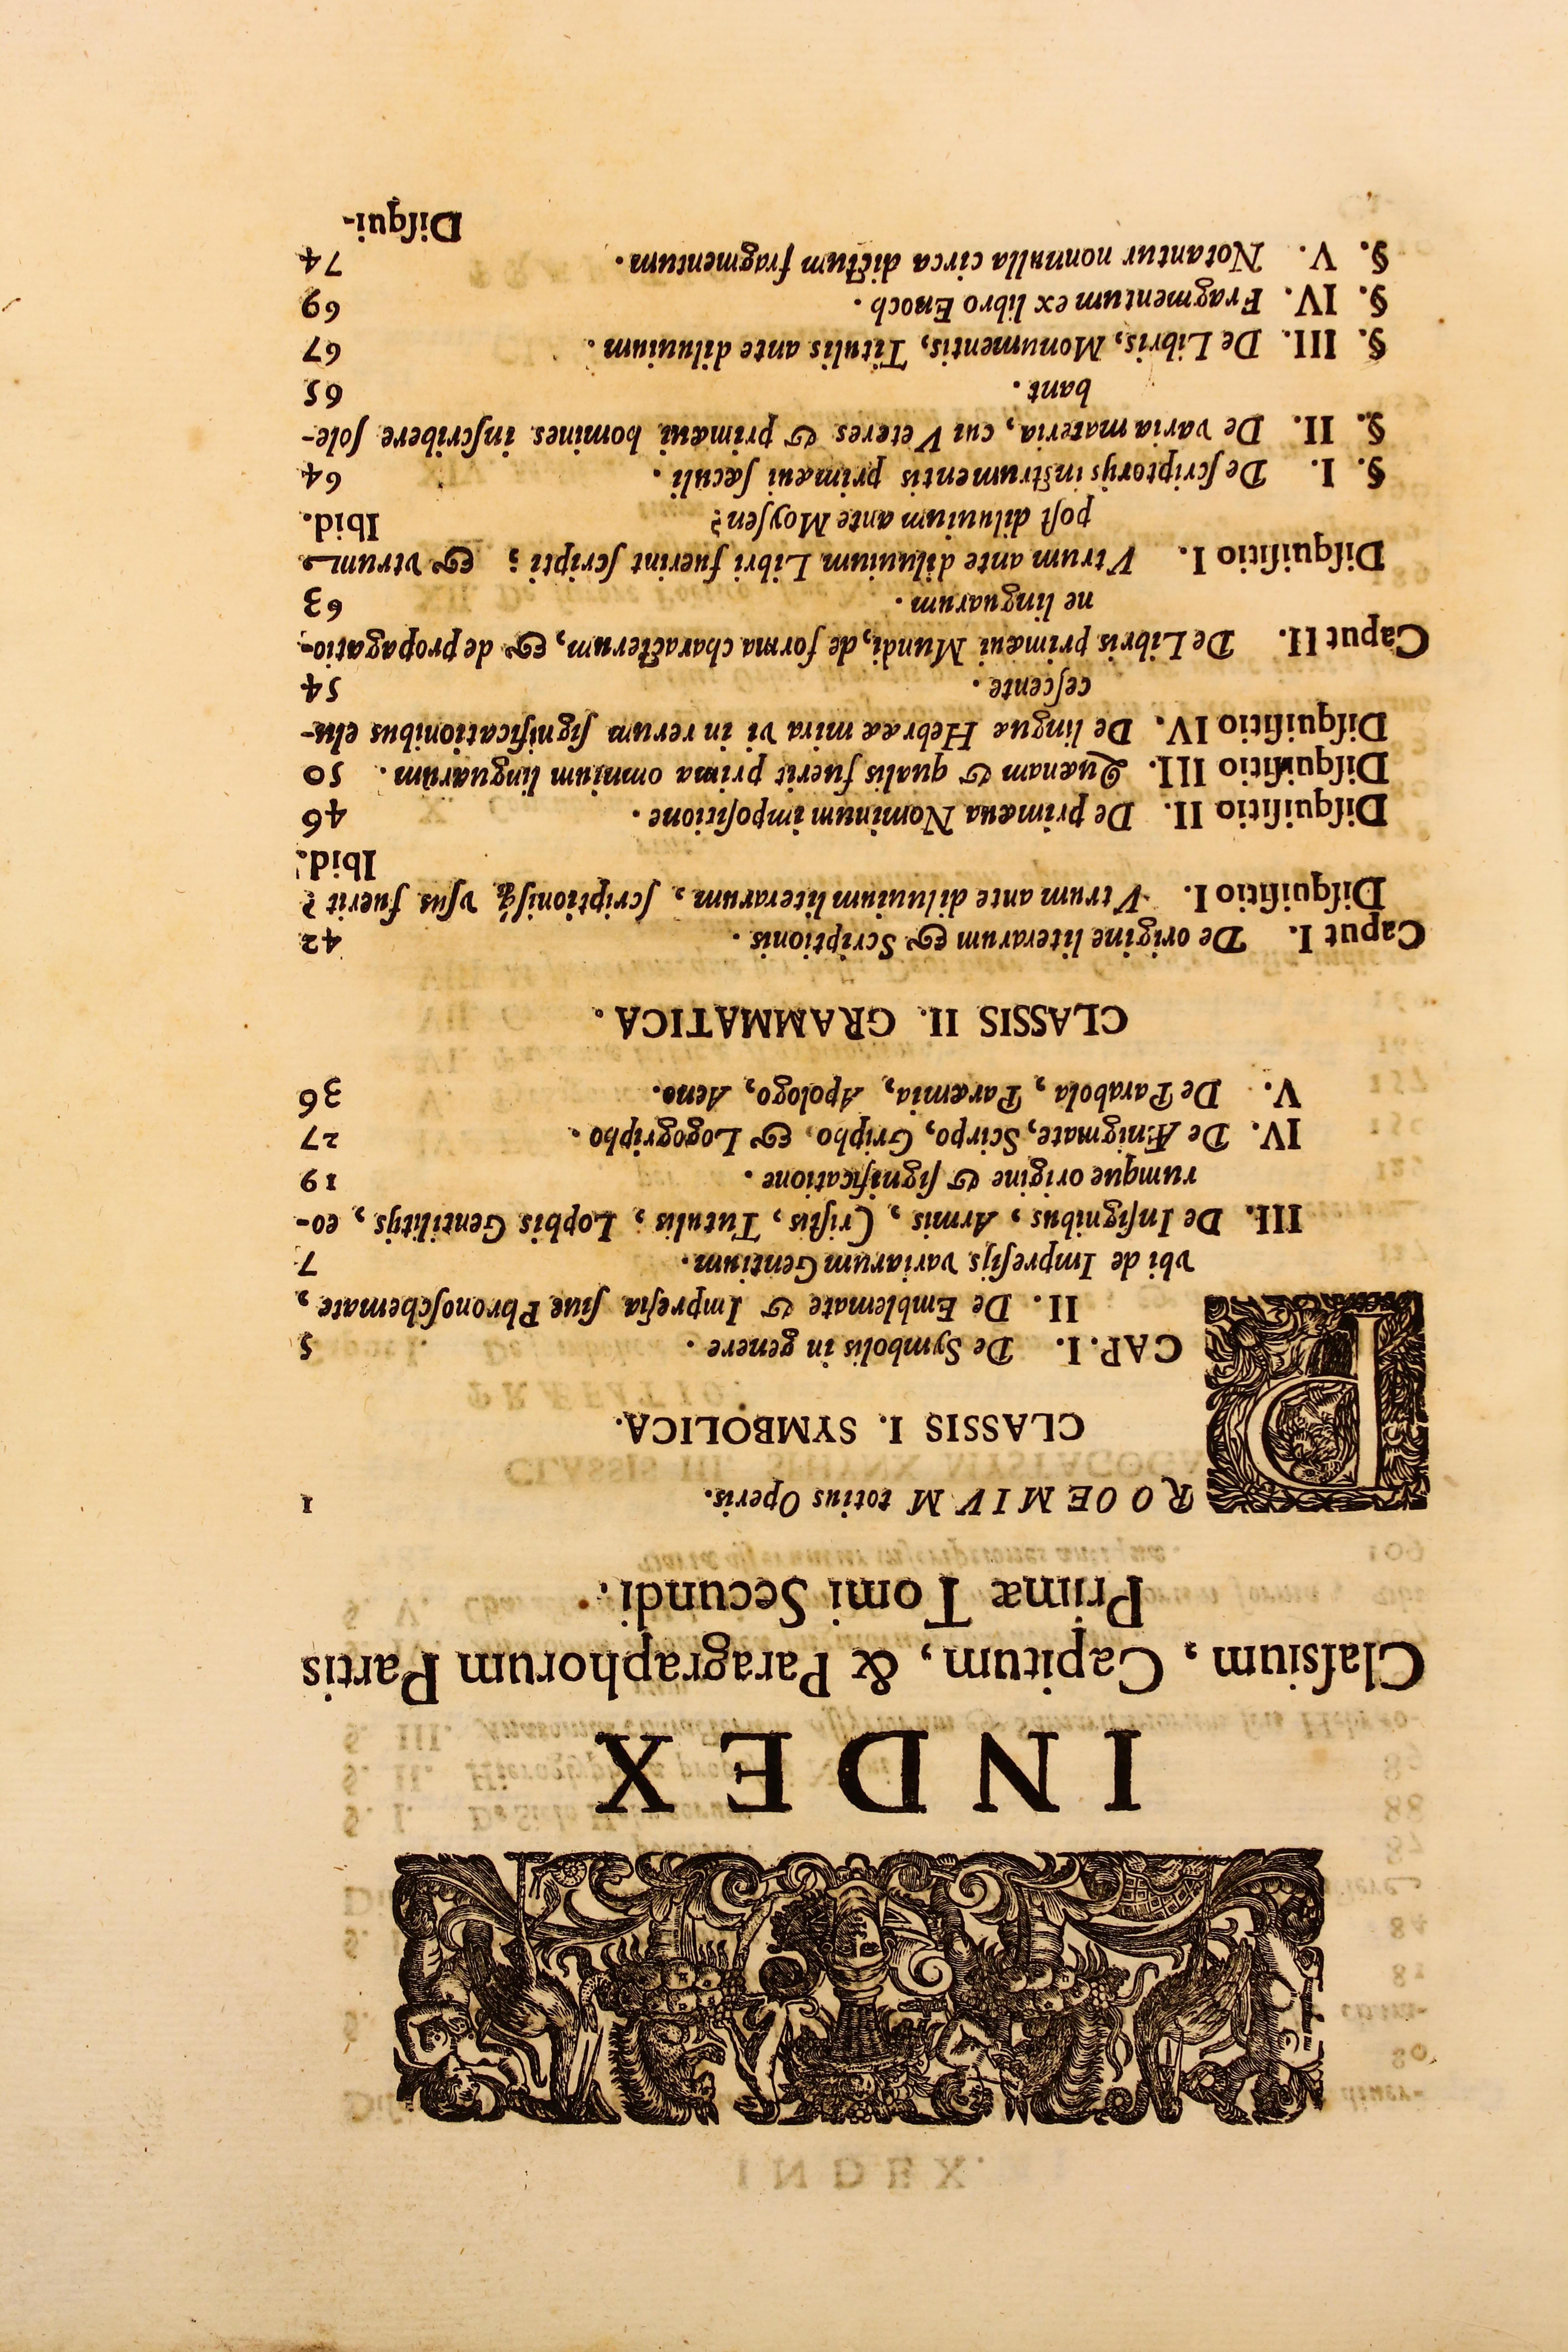 INDEX
Claſsium, Capitum, & Paragraphorum Partis
Primæ Tomi Secundi.
PROOEMIVM totius Operis. 1
CLASSIS I. SYMBOLICA.
CAP. I. De Symbolis in genere. 5
II. De Emblemate & Impreſia ſiue Phronoſchemate,
vbi de Impreſijs variarum Gentium. 7
III. De Inſignibus, Armis, Criſtis, Tutulis, Lophis Gentilitijs, eo-
rumque origine & ſignificatione. 19
IV. De Ænigmate, Scirpo, Gripho, & Logogripho. 27
V. De Parabola, Paræmia, Apologo, Aeno. 36
CLASSIS II. GRAMMATICA.
Caput I. De origine literarum & Scriptionis. 42
Diſquiſitio I. Vtrum ante diluuium literarum, ſcriptioniſq́; vſus fuerit?
Ibid.
Diſquiſitio II. De primæua Nominum impoſitione. 46
Diſquiſitio III. Quænam & qualis fuerit prima omnium linguarum. 50
Diſquiſitio IV. De linguæ Hebrææ mira vi in rerum ſignificationibus elu-
ceſcente. 54
Caput II. De Libris primæui Mundi, de forma characterum, & de propagatio-
ne linguarum. 63
Diſquiſitio I. Vtrum ante diluuium Libri fuerint ſcripti; & vtrum
poſt diluuium ante Moyſen? Ibid.
§. I. De ſcriptorijs inſtrumentis primæui ſæculi. 64
§. II. De varia materia, cui Veteres & primæui homines inſcribere ſole-
bant. 65
§. III. De Libris, Monumentis, Titulis ante diluuium. 67
§. IV. Fragmentum ex libro Enoch. 69
§. V. Notantur nonnulla circa dictum fragmentum. 74
Diſqui-